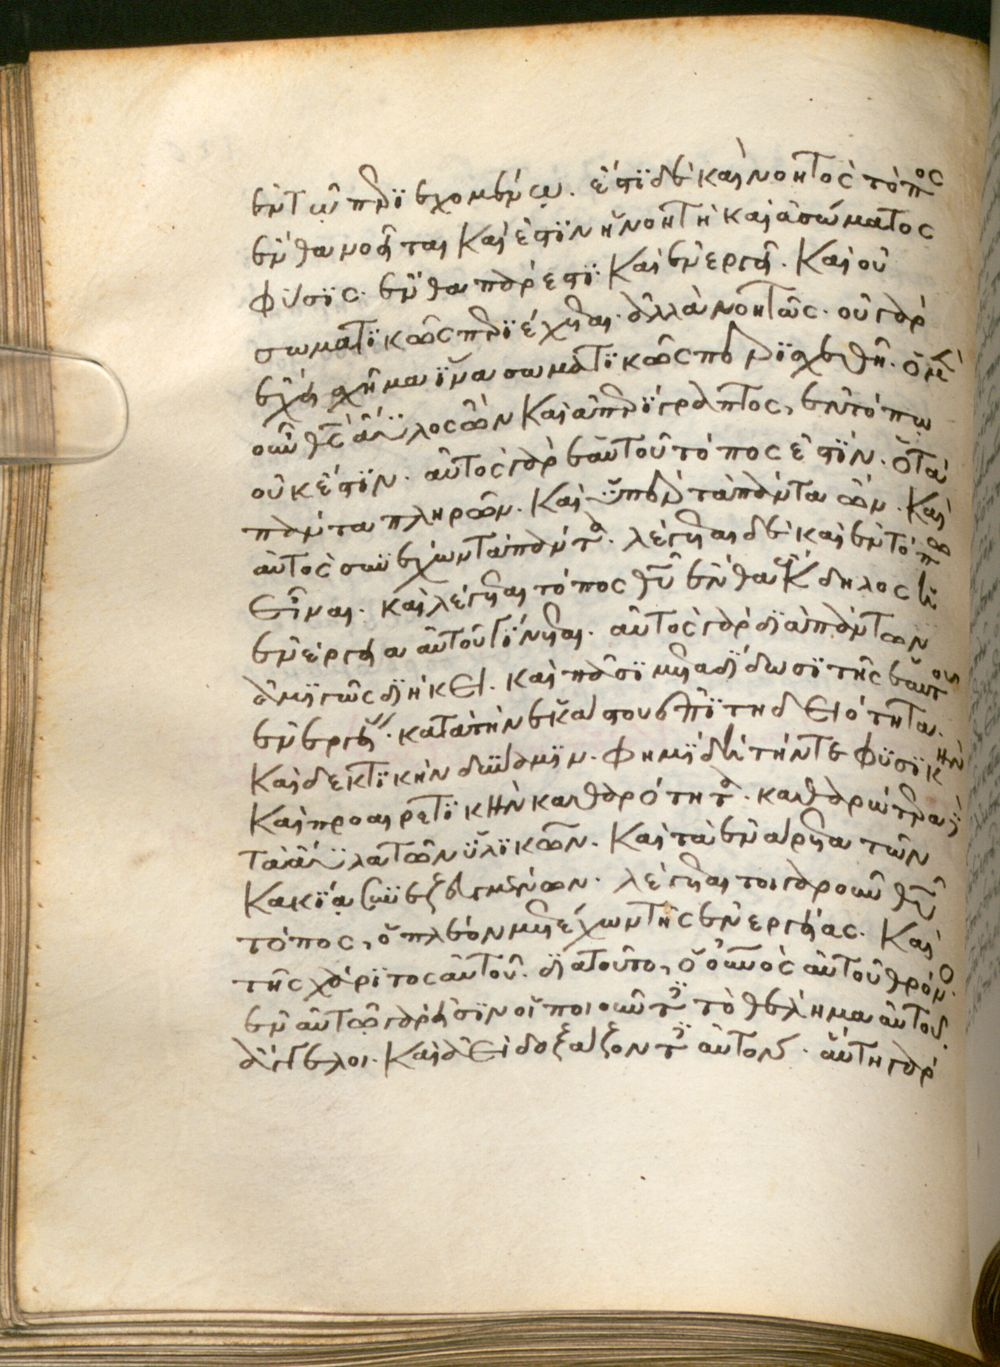 ἐν τῷ περιεχομένῳ. ἔστι δὲ καὶ νοητὸς τόπος
ἔνθα νοεῖται καὶ ἔστιν ἡ νοητὴ καὶ ἀσώματος
φύσις. ἔνθα πάρεστι· καὶ ἐνεργεῖ. καὶ οὐ
σωματικῶς περιέχεται· ἀλλὰ νοητῶς. οὐ γὰρ
ἔχει σχῆμα ἵνα σωματικῶς περισχεθῇ. ὁ μὲν
οὖν θεὸς ἄϋλος ὢν καὶ ἀπερίγραπτος, ἐν τόπω
οὐκ ἔστιν. αὐτὸς γὰρ ἑαυτοῦ τόπος ἐστίν. ὁ τὰ
πάντα πληρῶν. καὶ ὑπὲρ τὰ πάντα ὤν. καὶ
αὐτὸς συνέχων τὰ πάντα. λέγεται δὲ καὶ ἐν τόπω
εἶναι. καὶ λέγεται τόπος θεοῦ ἔνθα ἔκδηλος ἡ
ἐνέργεια αὐτοῦ γίνεται. αὐτὸς γὰρ διὰ πάντων
ἀμιγῶς διήκει. καὶ πᾶσι μεταδίδωσι τῆς ἑαυτοῦ
ἐνεργείας. κατὰ τὴν ἑκάστου ἐπιτηδειότητα.
καὶ δεκτικὴν δύναμιν. φημὶ δὲ τήν τε φυσικὴν
καὶ προαιρετικὴν καθαρότητα. καθαρώτερα γὰρ
τὰ ἄϋλα τῶν ὑλικῶν. καὶ τὰ ἐνάρετα τῶν
κακίᾳ συνεζευγμένων. λέγεται τοιγαροῦν θεοῦ
τόπος, ὁ πλέον μετέχων τῆς ἐνεργείας. καὶ
τῆς χάριτος αὐτοῦ. διατοῦτο, ὁ οὐρανὸς αὐτοῦ θρόνος.
ἐν αὐτῷ γάρ εἰσιν οἱ ποιοῦντες τὸ θέλημα αὐτοῦ.
ἄγγελοι. καὶ ἀεὶ δοξάζοντες αὐτόν. αὕτη γὰρ